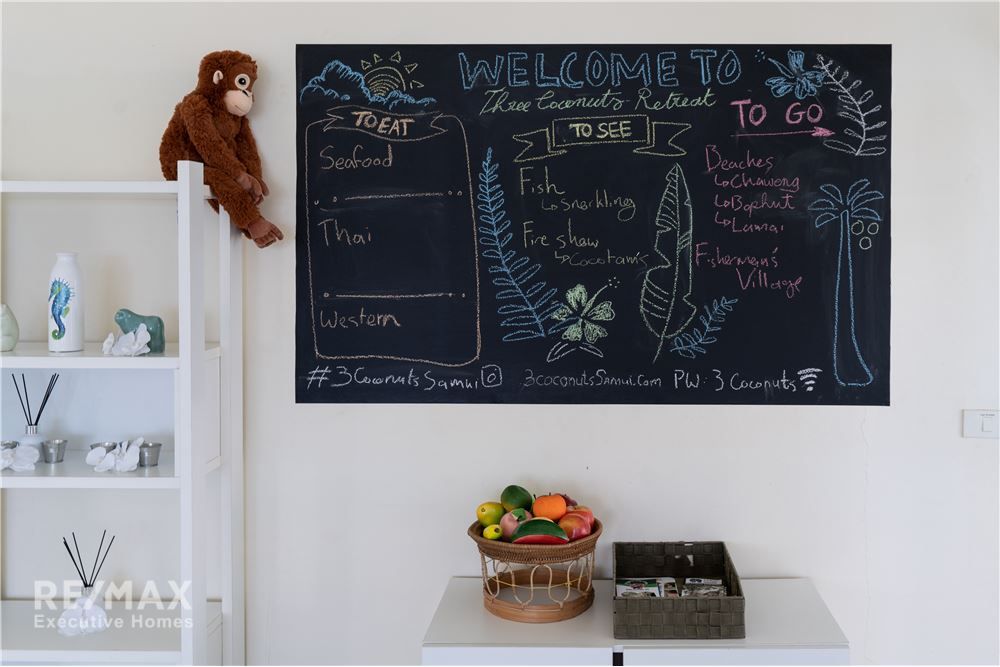 WELCOME TO
Three Coconuts Retreat
TO EAT
Seafood
Thai
Western
TO SEE
Fish
Snorkling
Fire show
Cocotam's
TO GO
Beaches
Chaweng
Bophut
Lamai
Fisherman's
Village
#3CoconutsSamui
3coconutsSamui.com
PW: 3 Coconuts
RE/MAX
Executive Homes